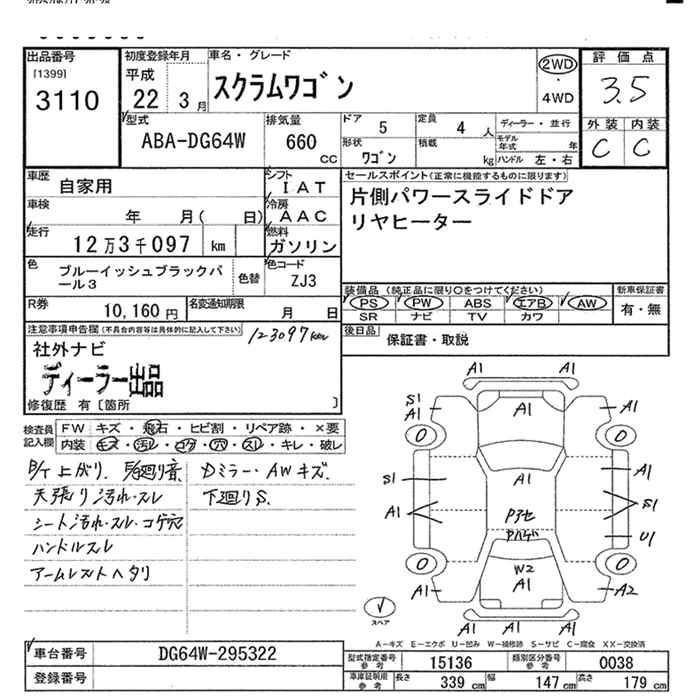 出品番号
[1399]
3110
初度登録年月
平成
22 3月
車名・グレード
スクラムワゴン
2WD
4WD
評価点
3.5
外装 内装
C C
型式
ABA-DG64W
排気量
660 CC
ドア 5
定員 4 人
ディーラー・並行
形状 ワゴン
積載 kg
モデル年式 年
ハンドル 左・右
車歴 自家用
シフト IAT
車検 年 月( 日)
冷房 AAC
走行 12万3千097 km
燃料 ガソリン
色 ブルーイッシュブラックパール3
色替
色コード ZJ3
R券 10,160円
名変通知期限 月 日
セールスポイント(正常に機能するものに限ります)
片側パワースライドドア
リヤヒーター
装備品(純正品に限り○をつけてください)
PS PW ABS エアB AW
SR ナビ TV カワ
新車保証書
有・無
後日品 保証書・取説
注意事項申告欄(不具合内容等は具体的に記入して下さい)
123097km
社外ナビ
ディーラー出品
修復歴 有〔箇所 〕
検査員記入欄
FW キズ・飛石・ヒビ割・リペア跡・×要
内装 キズ・汚レ・コゲ・穴・スレ・キレ・破レ
天張り汚れ・スレ
シート汚れ・スレ・コゲ穴
ハンドルスレ
アームレストヘタリ
Dミラー・AWキズ
下廻りS.
A1 A1
S1
A1 A1 A1
0 0
A1
S1 A1 S1
A1
Pアセ
U1
0 0
W2
A1 A1 A2
A1 A1
スペア
A-キズ E-エクボ U-凹み W-補修跡 S-サビ C-腐食 XX-交換済
車台番号 DG64W-295322
登録番号
型式指定番号 参考 15136
類別区分番号 参考 0038
車庫証明用 参考 長さ 339 cm 幅 147 cm 高さ 179 cm